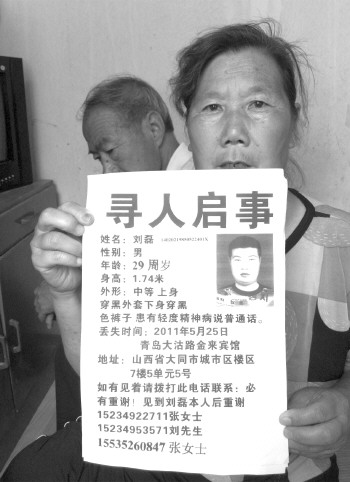 寻人启事
姓名：刘磊
性别：男
年龄：29 周岁
身高：1.74米
外形：中等 上身
穿黑外套下身穿黑
色裤子 患有轻度精神病说普通话。
丢失时间：2011年5月25日
青岛大沽路金来宾馆
地址：山西省大同市城市区楼区
7楼5单元5号
如有见着请拨打此电话联系：必
有重谢！见到刘磊本人后重谢
15234922711张女士
15234953571刘先生
15535260847 张女士